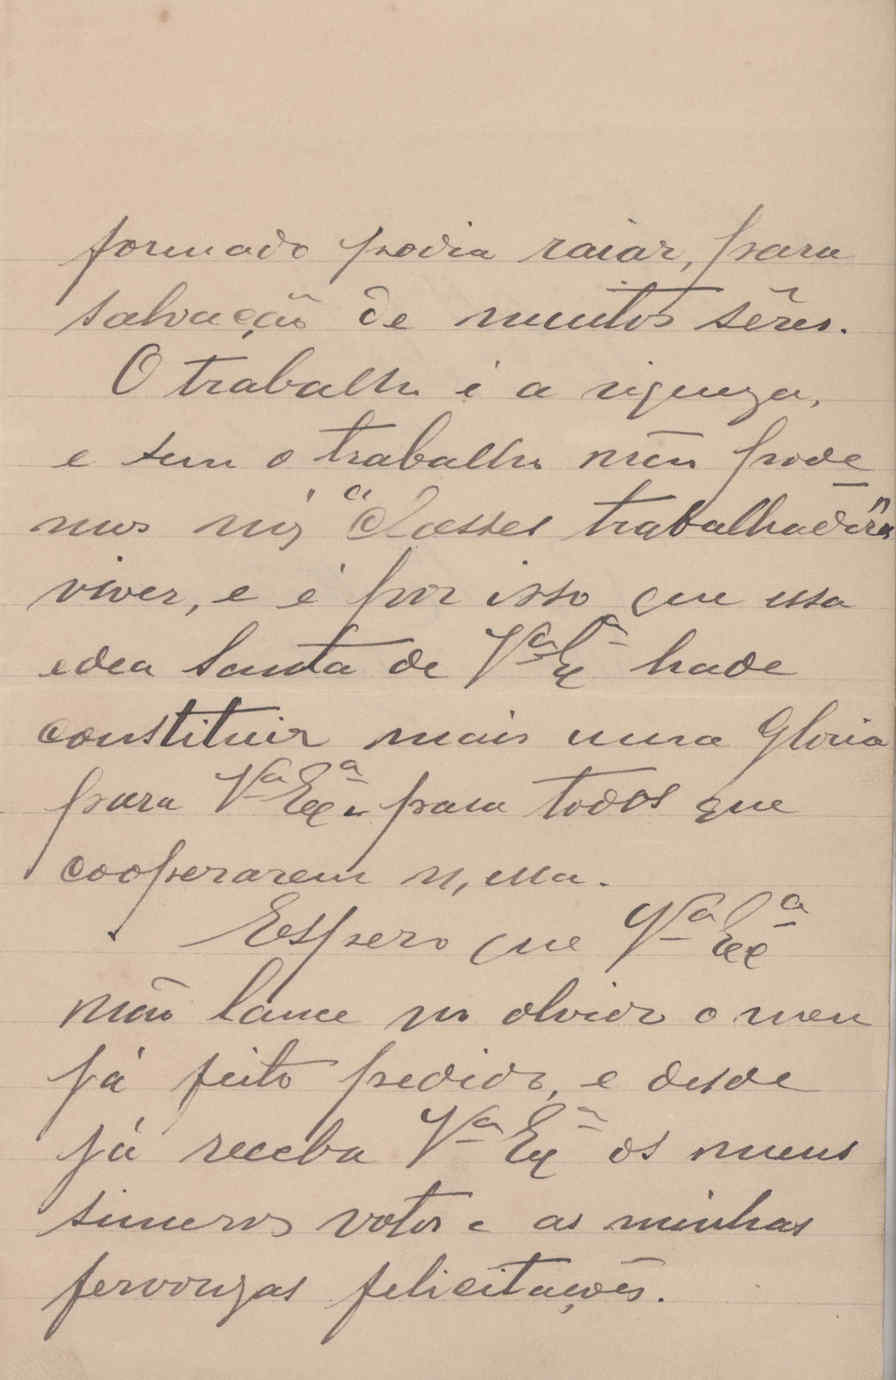 formado podia raiar, para
salvação de muitos sêres.
O trabalho é a riqueza,
e sem o trabalho não pode
mos nós "Classes trabalhadôras"
viver, e é por isso que essa
edea Santa de Vª Exª hade
constituir mais uma Gloria
para Vª Exª e para todos que
cooperarem n, essa.
Espero que Vª Exª
não lance no olvido o meu
já feito pedido, e desde
já receba Vª Exª os meus
sinceros votos e as minhas
fervorozas felicitações.